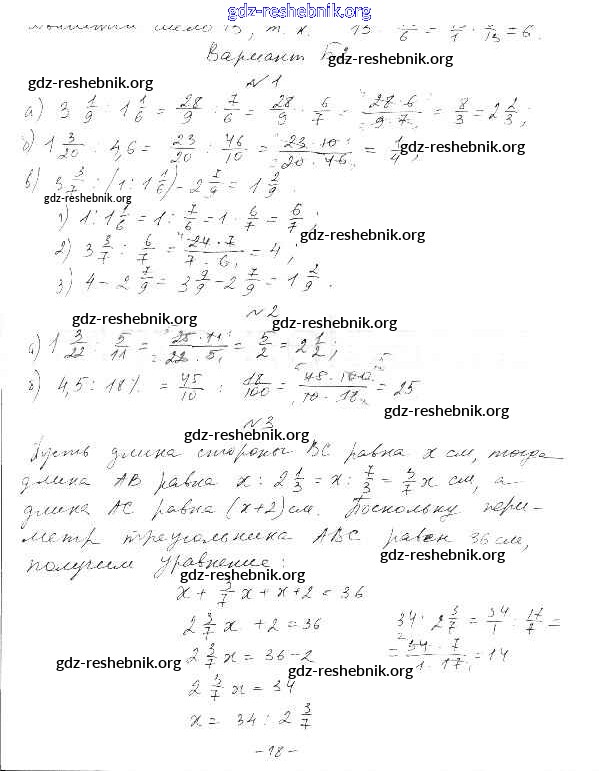 gdz-reshebnik.org
число 13, т. к. 13 : 13/6 = 13/1 · 6/13 = 6.
Вариант Б2
gdz-reshebnik.org
№ 1
gdz-reshebnik.org
а) 3 1/9 : 1 1/6 = 28/9 : 7/6 = 28/9 · 6/7 = 28·6/9·7 = 8/3 = 2 2/3;
б) 1 3/20 : 4,6 = 23/20 : 46/10 = 23·10/20·46 = 1/4;
gdz-reshebnik.org
в) 3 3/7 : (1 : 1 1/6) - 2 7/9 = 1 2/9.
gdz-reshebnik.org
1) 1 : 1 1/6 = 1 : 7/6 = 1 · 6/7 = 6/7;
gdz-reshebnik.org
2) 3 3/7 : 6/7 = 24·7/7·6 = 4;
3) 4 - 2 7/9 = 3 9/9 - 2 7/9 = 1 2/9.
gdz-reshebnik.org
№ 2
gdz-reshebnik.org
а) 1 3/22 : 5/11 = 25·11/22·5 = 5/2 = 2 1/2;
б) 4,5 : 18% = 45/10 : 18/100 = 45·100/10·18 = 25
gdz-reshebnik.org
№ 3
gdz-reshebnik.org
Пусть длина стороны BC равна x см, тогда
длина AB равна x : 2 1/3 = x : 7/3 = 3/7 x см, а
длина AC равна (x+2) см. Поскольку пери-
метр треугольника ABC равен 36 см,
gdz-reshebnik.org
получим уравнение:
gdz-reshebnik.org
x + 3/7 x + x + 2 = 36
2 3/7 x + 2 = 36
34 : 2 3/7 = 34/1 : 17/7 =
2 3/7 x = 36 - 2
= 34·7/1·17 = 14
gdz-reshebnik.org
gdz-reshebnik.org
2 3/7 x = 34
x = 34 : 2 3/7
- 18 -
gdz-reshebnik.org